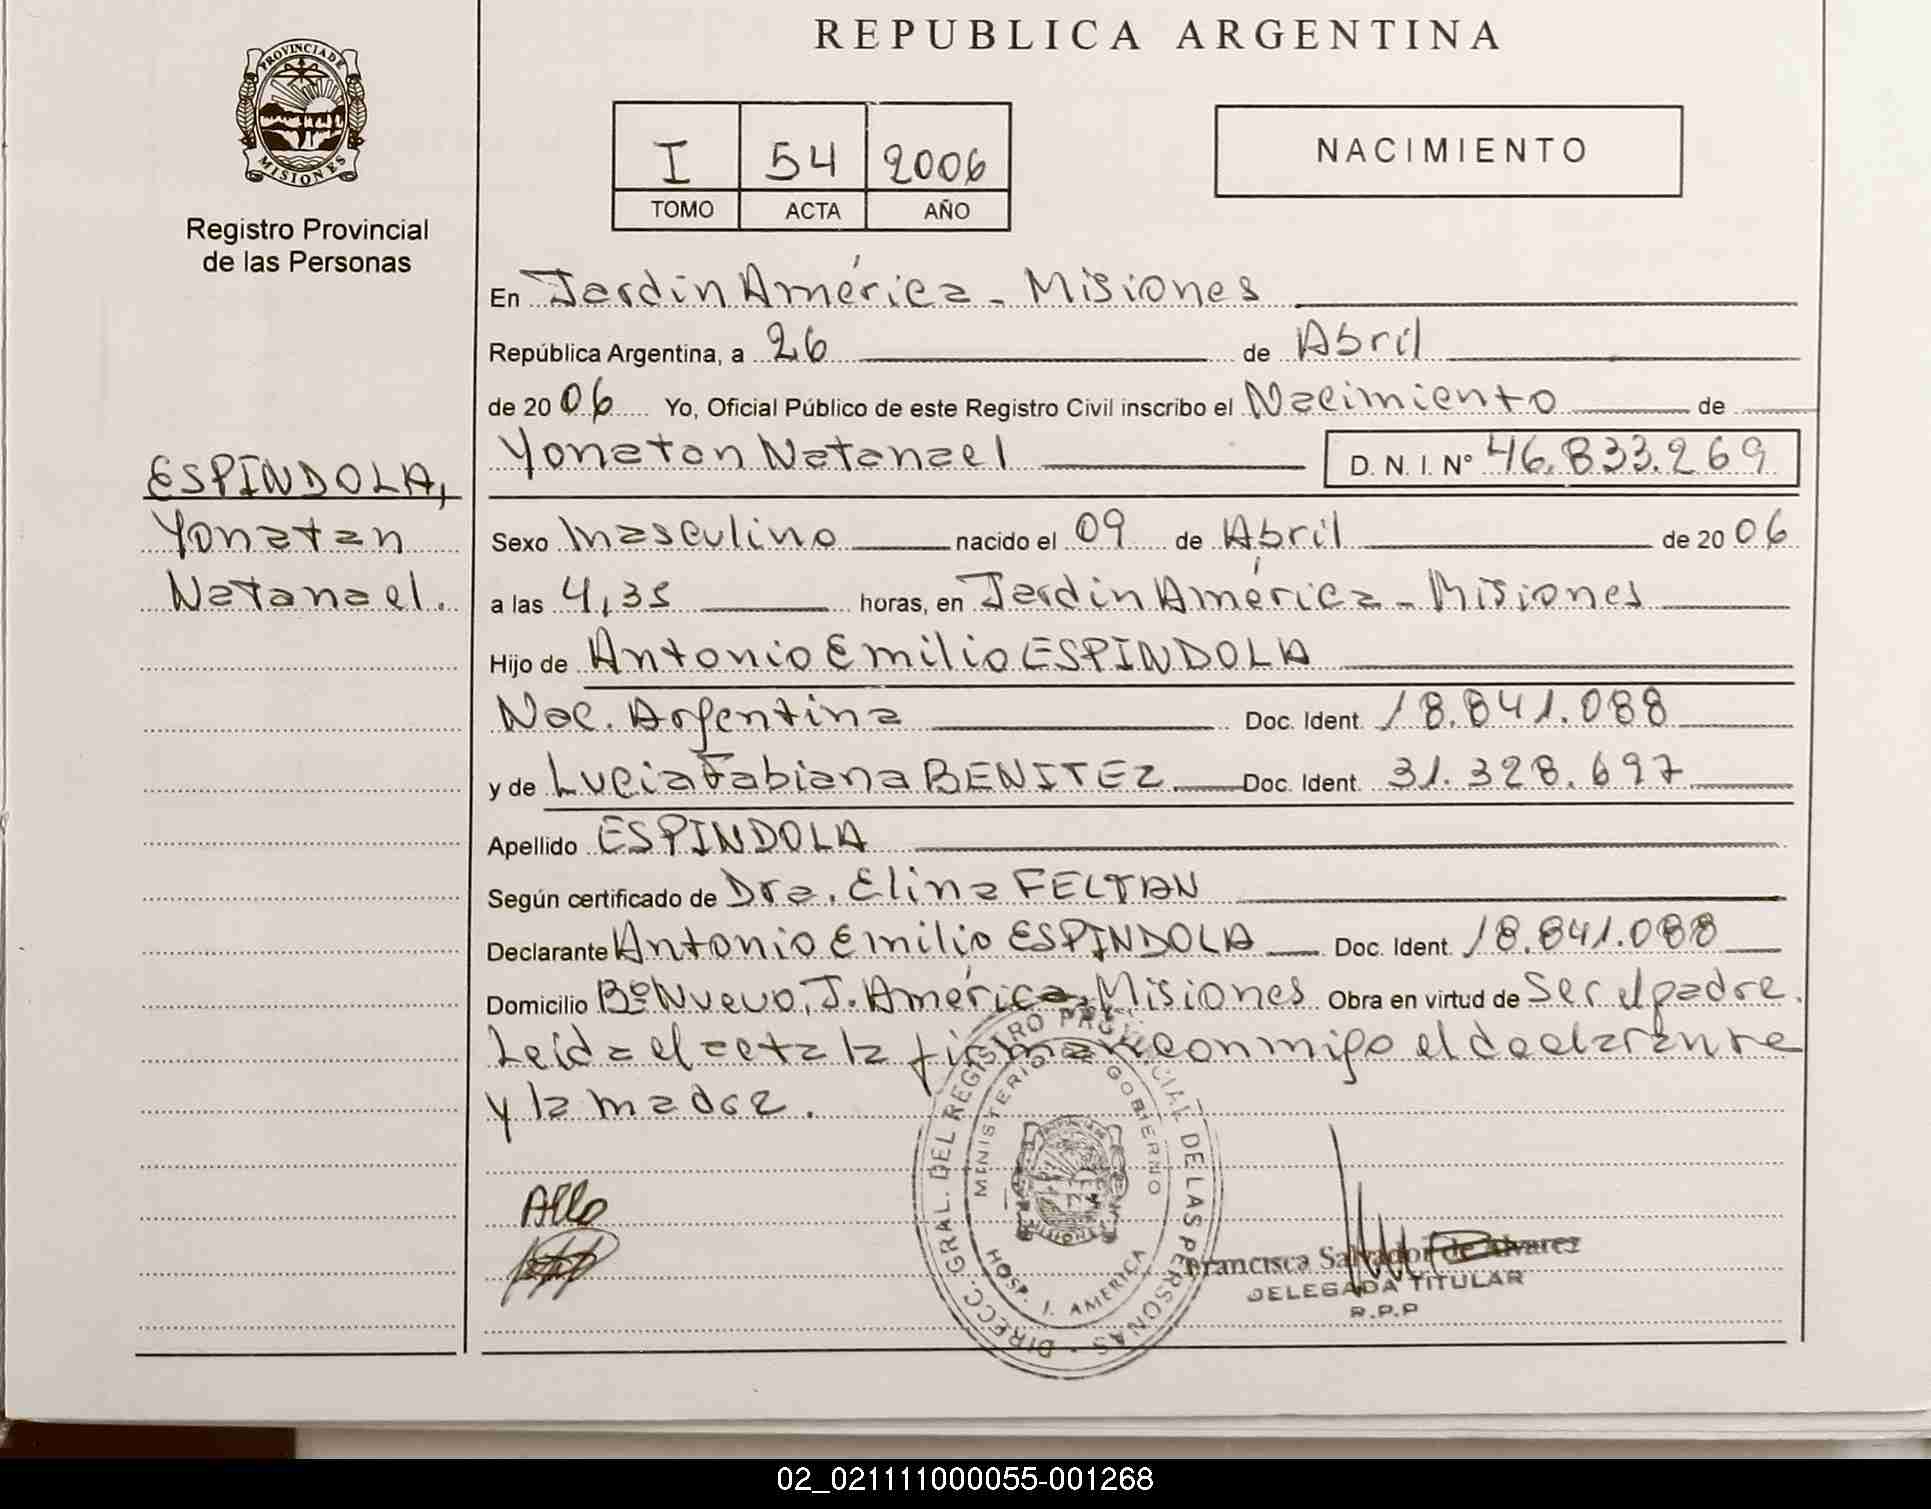 REPUBLICA ARGENTINA
PROVINCIA DE MISIONES
Registro Provincial
de las Personas
I 54 2006
TOMO ACTA AÑO
NACIMIENTO
En Jardín América - Misiones
República Argentina, a 26 de Abril
de 2006 Yo, Oficial Público de este Registro Civil inscribo el Nacimiento de
Yonatan Natanael D. N. I. Nº 46.833.269
ESPINDOLA,
Yonatan
Natanael.
Sexo Masculino nacido el 09 de Abril de 2006
a las 4,35 horas, en Jardín América - Misiones
Hijo de Antonio Emilio ESPINDOLA
Nac. Argentina Doc. Ident. 18.841.088
y de Lucia Fabiana BENITEZ Doc. Ident. 31.328.697
Apellido ESPINDOLA
Según certificado de Dra. Elina FELTAN
Declarante Antonio Emilio ESPINDOLA Doc. Ident. 18.841.088
Domicilio Bº Nuevo, J. América, Misiones Obra en virtud de Ser el padre.
Leida el acta la firman conmigo el declarante
y la madre.
DIRECC. GRAL. DEL REGISTRO PROVINCIAL DE LAS PERSONAS
MINISTERIO GOBIERNO
HOSP. J. AMERICA
Francisca Salvador de Alvarez
DELEGADA TITULAR
R.P.P
02_021111000055-001268